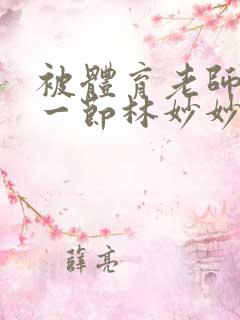 被體育老師
一節林妙妙
薛亮